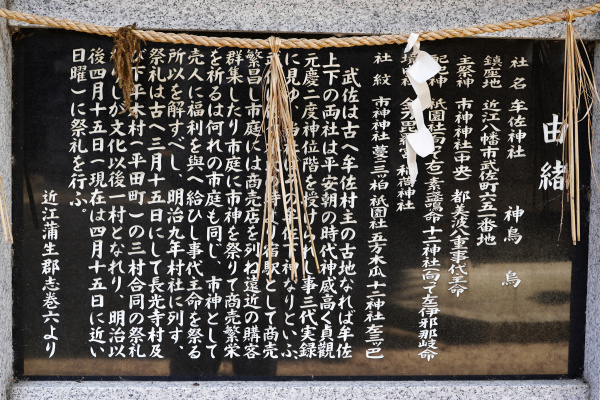 由緒
社名 牟佐神社 神鳥 烏
鎮座地 近江八幡市武佐町六五一番地
主祭神 市神神社(中央) 都美波八重事代主命
配祀神 祇園社(向て右)素盞鳴命十二神社(向て左)伊邪那岐命
境内社 金刀毘羅宮 稲荷神社
社紋 市神神社 蔓三ッ柏 祇園社 五ッ木瓜 十二神社 左三ッ巴
武佐は古へ牟佐村主の古地なれば牟佐
上下の両社は平安朝の時代神威高く貞観
元慶二度神位階を授けられし事三代実録
に見ゆ 当社は の牟佐下神なりといふ
武佐 の 時より宿駅として商売
繁昌し市庭には商売店を列ね遠近の購客
群集したり市庭に市神を祭りて商売繁栄
を祈るは何れの市庭も同じ、市神として
売人に福利を與へ給ひし事代主命を祭る
所以を解すべし、明治九年村社に列す、
祭礼は古へ三月十五日にして長光寺村及
び下平木村(平田町)の三村合同の祭礼
なりしが文化以後一村となれり、明治以
後四月十五日(現在は四月十五日に近い
日曜)に祭礼を行ふ。
近江蒲生郡志巻六より